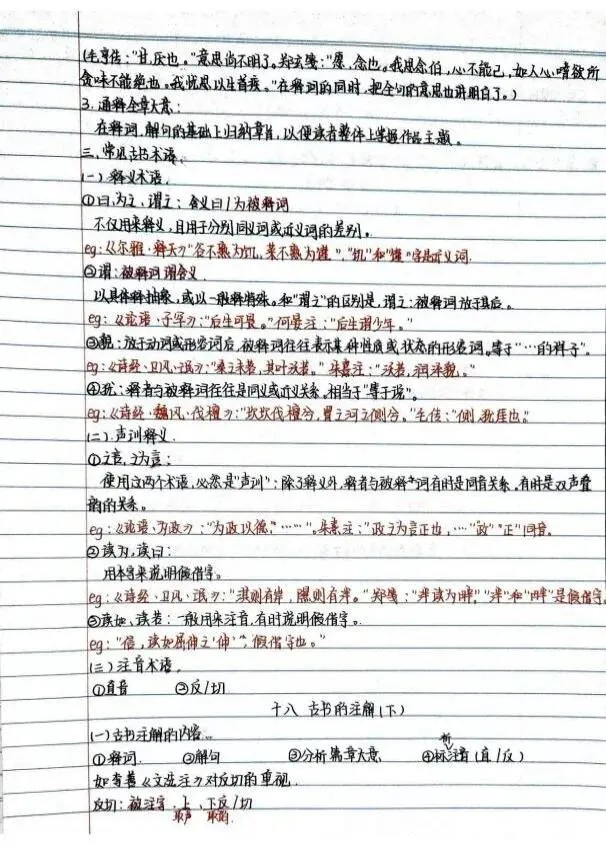 (毛亨传："甘,厌也。"意思尚不明了。郑玄笺："愿,念也。我思念伯,心不能已,如人心嗜欲所
贪味不能绝也。我忧思以生首疾。"在释词的同时,把全句的意思也讲明白了。)
3.通释全章大意:
在释词、解句的基础上归纳章旨,以便读者整体上掌握作品主题。
三、常见古书术语。
(一)释义术语。
①曰、为之、谓之:含义曰/为被释词
不仅用来释义,且用于分别同义词或近义词的差别。
eg:《尔雅·释天》"谷不熟为饥,菜不熟为馑"."饥"和"馑"字是近义词.
②谓:被释词谓含义.
以具体释抽象,或以一般释特殊。和"谓之"的区别是,谓之:被释词放于其后。
eg:《论语·子罕》:"后生可畏。"何晏注:"后生谓少年。"
③貌:放于动词或形容词后,被释词往往表示某种性质或状态的形容词。等于"…的样子".
eg:《诗经·卫风·氓》:"桑之未落,其叶沃若。"朱熹注:"沃若,润泽貌。"
④犹:释者与被释词往往是同义或近义关系。相当于"等于说"。
eg:《诗经·魏风·伐檀》:"坎坎伐檀兮,置之河之侧兮。"毛传:"侧,犹厓也。"
(二)声训释义.
①之言,之为言:
使用这两个术语,必然是"声训":除了释义外,释者与被释词有时是同音关系,有时是双声叠
韵的关系。
eg:《论语·为政》:"为政以德,"……"。朱熹注:"政之为言正也,…"政""正"同音.
②读为,读曰:
用本字来说明假借字。
eg:《诗经·卫风·氓》:"淇则有岸,隰则有泮。"郑笺:"泮读为畔,""泮"和"畔"是假借字.
③读如、读若:一般用来注音,有时说明假借字。
eg:"信,读如屈伸之'伸'",假借字也。"
(三)注音术语.
①直音 ②反/切
十八 古书的注解(下)
(一)古书注解的内容..
①释词. ②解句 ③分析篇章大意 ④标注音(直/反)
如李善《文选注》对反切的重视.
反切:被注字,上、下反/切
取声 取韵.